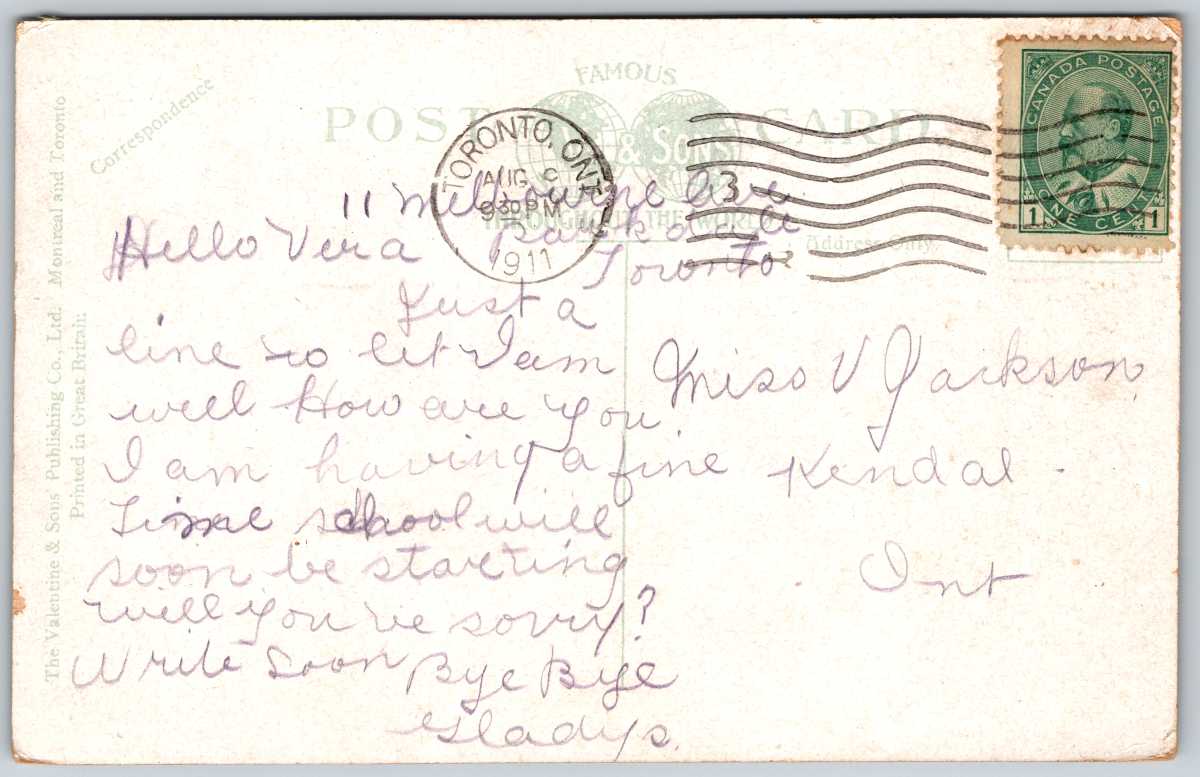 Correspondence
FAMOUS
POST CARD
& SONS
THROUGHOUT THE WORLD
Address Only.
TORONTO, ONT.
AUG
930 PM
1911
3
CANADA POSTAGE
1 ONE CENT 1
11 Melbourne Ave
Parkdale
Toronto
Hello Vera
Just a
line to let I am
well How are you
I am having a fine
Time school will
soon be starting
will you be sorry?
Write Soon Bye Bye
Gladys.
Miss V Jackson
Kendal
Ont
The Valentine & Sons' Publishing Co., Ltd. Montreal and Toronto
Printed in Great Britain.